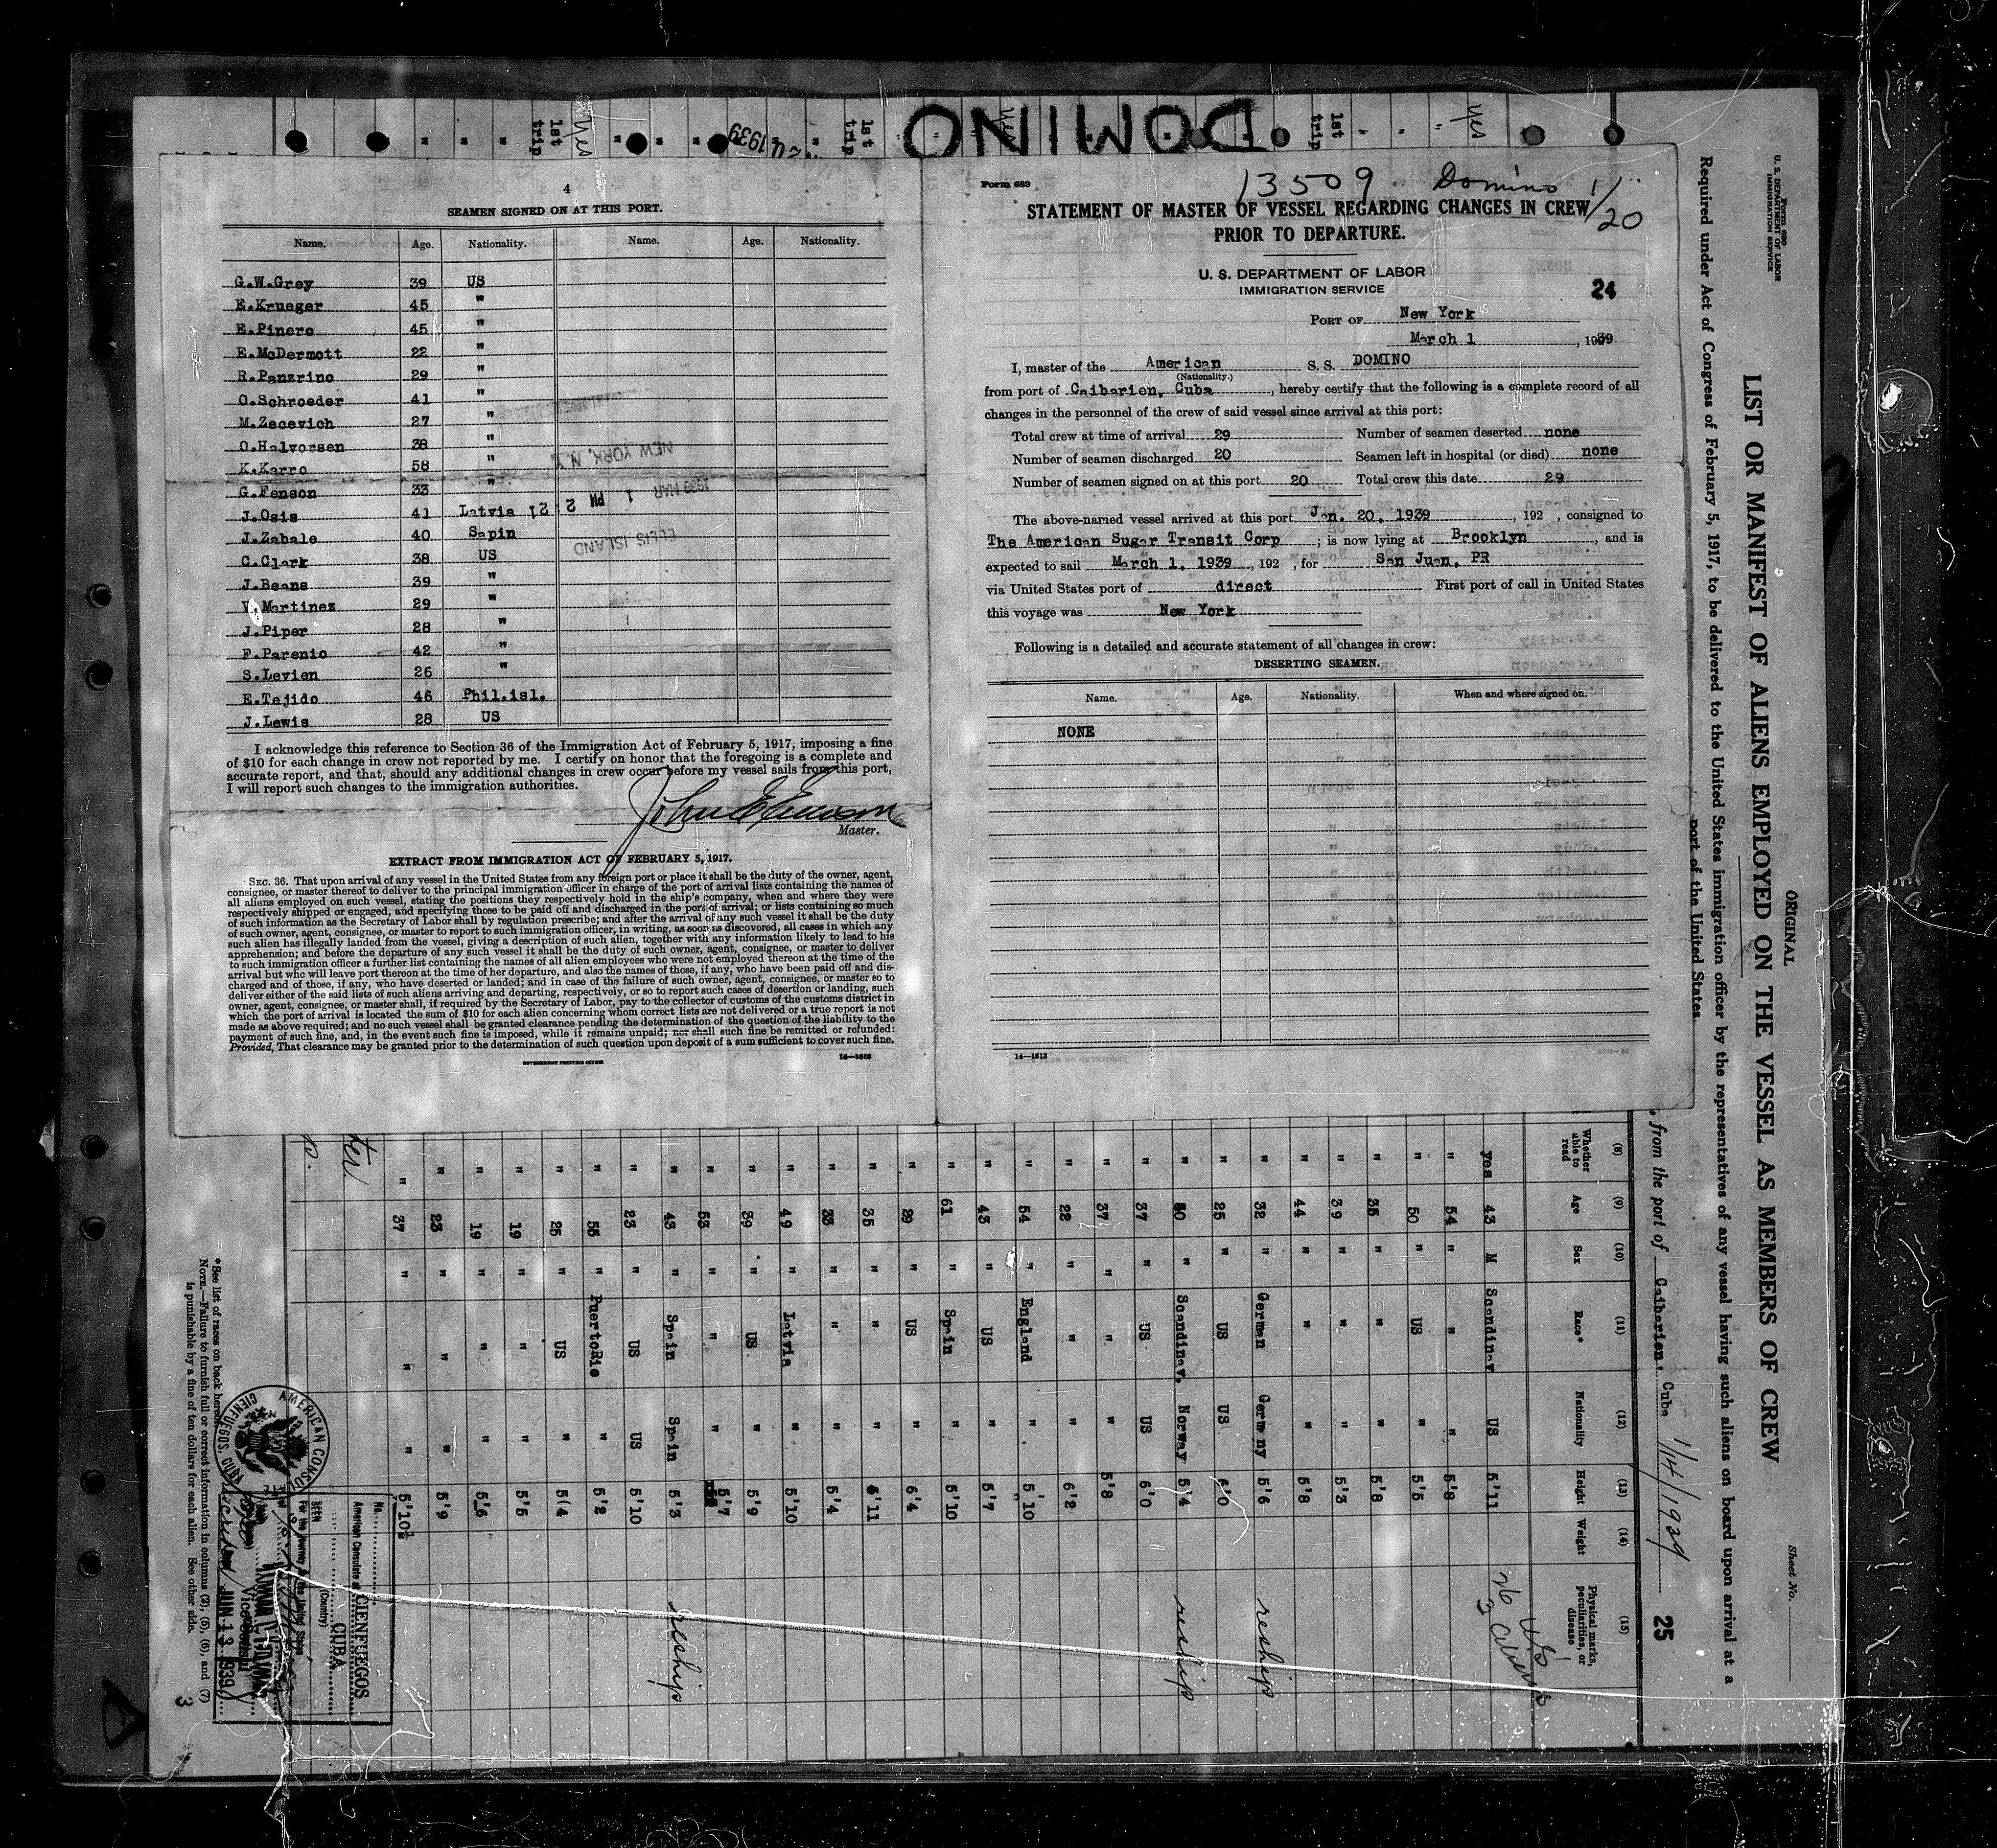 DOMINO
4
SEAMEN SIGNED ON AT THIS PORT.
Name. Age. Nationality. Name. Age. Nationality.
G.W.Grey 39 US
E.Krueger 45 "
E.Pinero 45 "
E.McDermott 22 "
R.Panzrino 29 "
O.Schroeder 41 "
M.Zecevich 27 "
O.Halvorsen 38 "
K.Karro 58 "
G.Fenson 33 "
J.Osis 41 Latvia
J.Zabale 40 Sapin
C.Clark 38 US
J.Beans 39 "
Martinez 29 "
J.Piper 28 "
F.Parenio 42 "
S.Levien 26 "
E.Tejido 46 Phil.isl.
J.Lewis 28 US
NEW YORK, N.Y.
1939 MAR 1 PM 2 21
ELLIS ISLAND
I acknowledge this reference to Section 36 of the Immigration Act of February 5, 1917, imposing a fine
of $10 for each change in crew not reported by me. I certify on honor that the foregoing is a complete and
accurate report, and that, should any additional changes in crew occur before my vessel sails from this port,
I will report such changes to the immigration authorities.
Master.
EXTRACT FROM IMMIGRATION ACT OF FEBRUARY 5, 1917.
SEC. 36. That upon arrival of any vessel in the United States from any foreign port or place it shall be the duty of the owner, agent,
consignee, or master thereof to deliver to the principal immigration officer in charge of the port of arrival lists containing the names of
all aliens employed on such vessel, stating the positions they respectively hold in the ship's company, when and where they were
respectively shipped or engaged, and specifying those to be paid off and discharged in the port of arrival; or lists containing so much
of such information as the Secretary of Labor shall by regulation prescribe; and after the arrival of any such vessel it shall be the duty
of such owner, agent, consignee, or master to report to such immigration officer, in writing, as soon as discovered, all cases in which any
such alien has illegally landed from the vessel, giving a description of such alien, together with any information likely to lead to his
apprehension; and before the departure of any such vessel it shall be the duty of such owner, agent, consignee, or master to deliver
to such immigration officer a further list containing the names of all alien employees who were not employed thereon at the time of the
arrival but who will leave port thereon at the time of her departure, and also the names of those, if any, who have been paid off and dis-
charged and of those, if any, who have deserted or landed; and in case of the failure of such owner, agent, consignee, or master so to
deliver either of the said lists of such aliens arriving and departing, respectively, or so to report such cases of desertion or landing, such
owner, agent, consignee, or master shall, if required by the Secretary of Labor, pay to the collector of customs of the customs district in
which the port of arrival is located the sum of $10 for each alien concerning whom correct lists are not delivered or a true report is not
made as above required; and no such vessel shall be granted clearance pending the determination of the question of the liability to the
payment of such fine, and, in the event such fine is imposed, while it remains unpaid; nor shall such fine be remitted or refunded:
Provided, That clearance may be granted prior to the determination of such question upon deposit of a sum sufficient to cover such fine.
GOVERNMENT PRINTING OFFICE
Form 689
13509 Domino 1/20
STATEMENT OF MASTER OF VESSEL REGARDING CHANGES IN CREW
PRIOR TO DEPARTURE.
U. S. DEPARTMENT OF LABOR
IMMIGRATION SERVICE
24
PORT OF New York
March 1, 1939
I, master of the American S. S. DOMINO
(Nationality.)
from port of Caibarien, Cuba, hereby certify that the following is a complete record of all
changes in the personnel of the crew of said vessel since arrival at this port:
Total crew at time of arrival 29 Number of seamen deserted none
Number of seamen discharged 20 Seamen left in hospital (or died) none
Number of seamen signed on at this port 20 Total crew this date 29
The above-named vessel arrived at this port Jan. 20, 1939, 192 , consigned to
The American Sugar Transit Corp ; is now lying at Brooklyn, and is
expected to sail March 1, 1939, 192 , for San Juan, PR
via United States port of direct First port of call in United States
this voyage was New York
Following is a detailed and accurate statement of all changes in crew:
DESERTING SEAMEN.
Name. Age. Nationality. When and where signed on.
NONE
14—1613
Form 680
U. S. DEPARTMENT OF LABOR
IMMIGRATION SERVICE
ORIGINAL
Sheet No.
LIST OR MANIFEST OF ALIENS EMPLOYED ON THE VESSEL AS MEMBERS OF CREW
Required under Act of Congress of February 5, 1917, to be delivered to the United States immigration officer by the representatives of any vessel having such aliens on board upon arrival at a
port of the United States.
from the port of Caibarien, Cuba 1/14/1939
25
(8) (9) (10) (11) (12) (13) (14) (15)
Whether able to read Age Sex Race* Nationality Height Weight Physical marks, peculiarities, or disease
yes 43 M Scandinav US 5'11
" 54 " " " 5'8
" 50 " US " 5'5
" 35 " " " 5'8
" 39 " " " 5'3
" 44 " " " 5'8
" 32 " German Germany 5'6 reship
" 25 " US US 6'0
" 30 " Scandinav. Norway 5'4 reship
" 37 " US US 6'0
" 37 " " " 5'8
" 22 " " " 6'2
" 54 " England " 5'10
" 43 " US " 5'7
" 61 " Spain " 5'10
" 29 " US " 6'4
" 35 " " " 5'11
" 33 " " " 5'4
" 49 " Latvia " 5'10
" 39 " US " 5'9
" 53 " " " 5'7
" 43 " Spain Spain 5'3 reship
" 23 " US US 5'10
" 55 " PuertoRic " 5'2
" 25 " US " 5'4
" 19 " " " 5'5
" 19 " " " 5'6
" 23 " " " 5'9
" 37 " " " 5'10½
26 US
3 Aliens
*See list of races on back hereof.
NOTE.—Failure to furnish full or correct information in columns (2), (5), (6), and (7)
is punishable by a fine of ten dollars for each alien. See other side.
AMERICAN CONSU
CIENFUEGOS, CUBA
No.
American Consulate at CIENFUEGOS
CUBA
(Country)
SEEN
For the journey to the United States
Vice Consul
JAN 13 1939
3